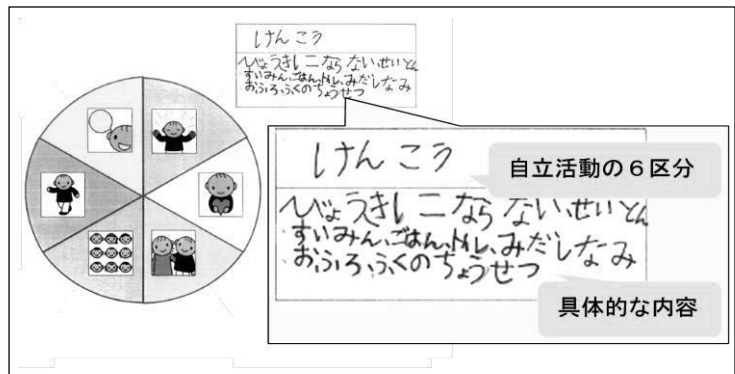 けんこう
びょうきしニならない、せいとん
すいみん、ごはん、トイレ、みだしなみ
おふろ、ふくのちょうせつ
けんこう
自立活動の6区分
びょうきしニならない、せいとん
すいみん、ごはん、トイレ、みだしなみ
おふろ、ふくのちょうせつ
具体的な内容